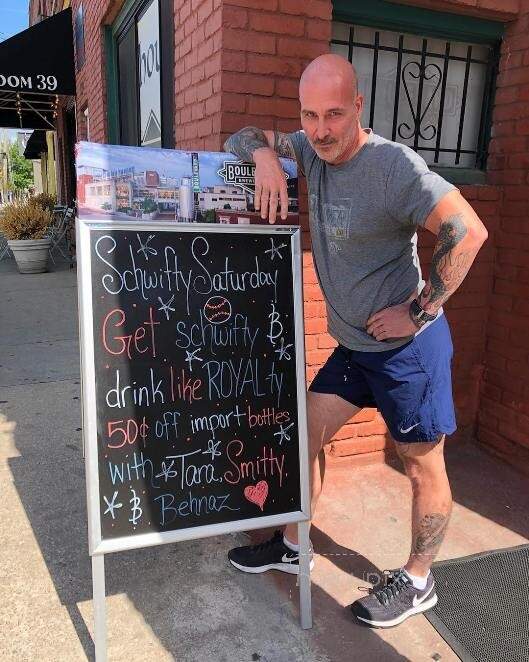 OOM 39
BOULE
Schwifty Saturday
Get schwifty &
drink like ROYAL-ty
50¢ off import bottles
with Tara, Smitty,
& Behnaz